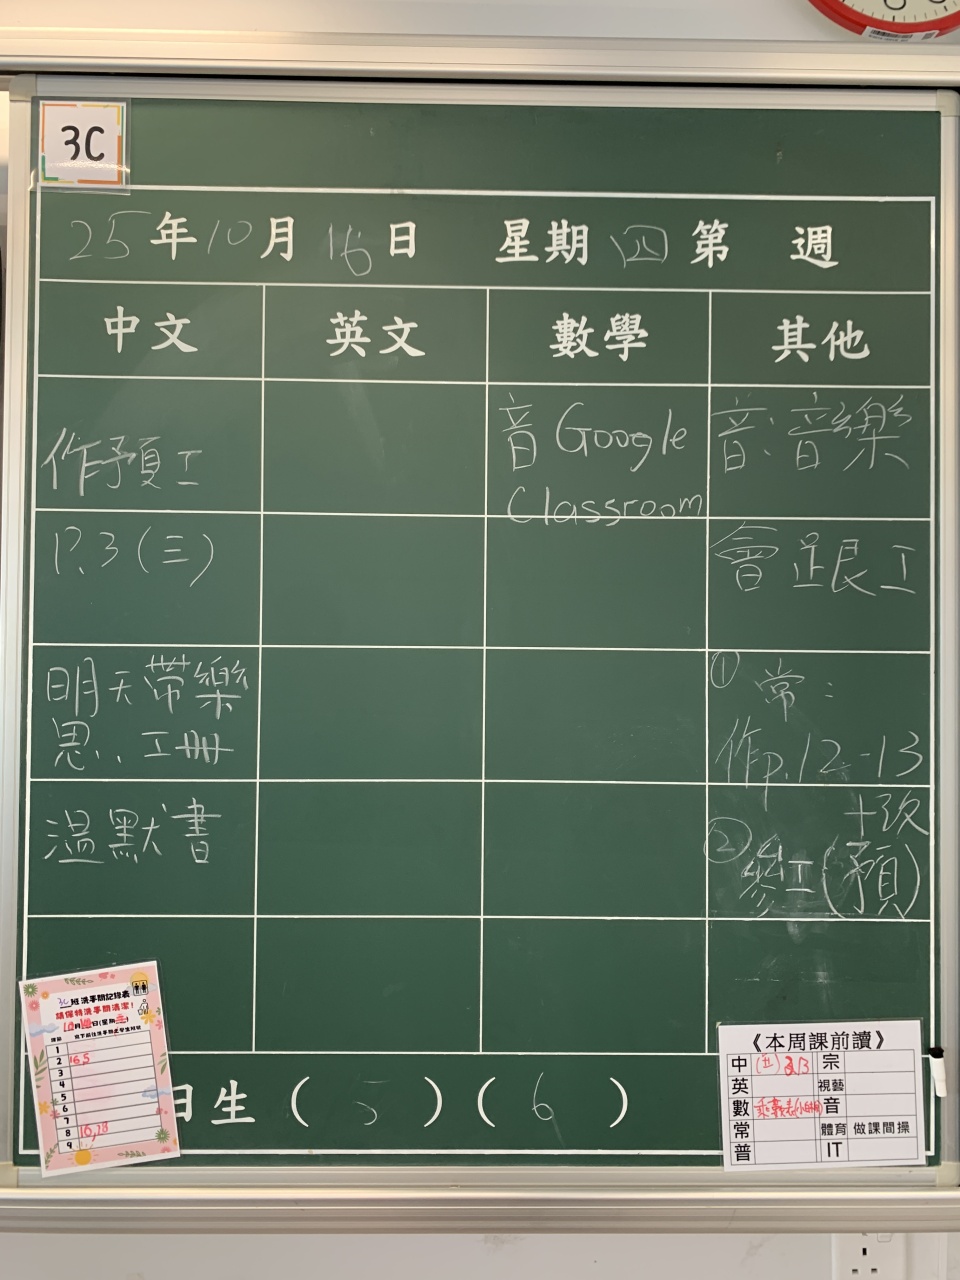 3C
25年10月16日 星期四 第 週
中文 英文 數學 其他
作預工
P.3(三)
明天帶樂
思.. 工冊
溫默書
音 Google
Classroom
音:音樂
會 跟工
① 常:
作p.12-13
+改
② 工(預)
3C班洗手間記錄表
請保持洗手間清潔!
1
2 16,5
3
4
5
6
7
8 16,18
9
日生 ( 5 ) ( 6 )
《本周課前讀》
中 宗
英 視藝
數 乘數表 音
常 體育 做課間操
普 IT